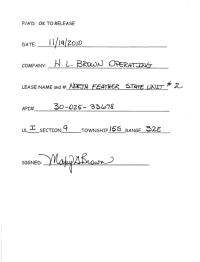 P/A'D. OK TO RELEASE
DATE: 11/19/2010
COMPANY: H. L. BROWN OPERATING
LEASE NAME and #. NORTH FEATHER STATE UNIT # 2
API# 30-025-33678
UL I SECTION 9 TOWNSHIP 15S RANGE 32E
SIGNED: